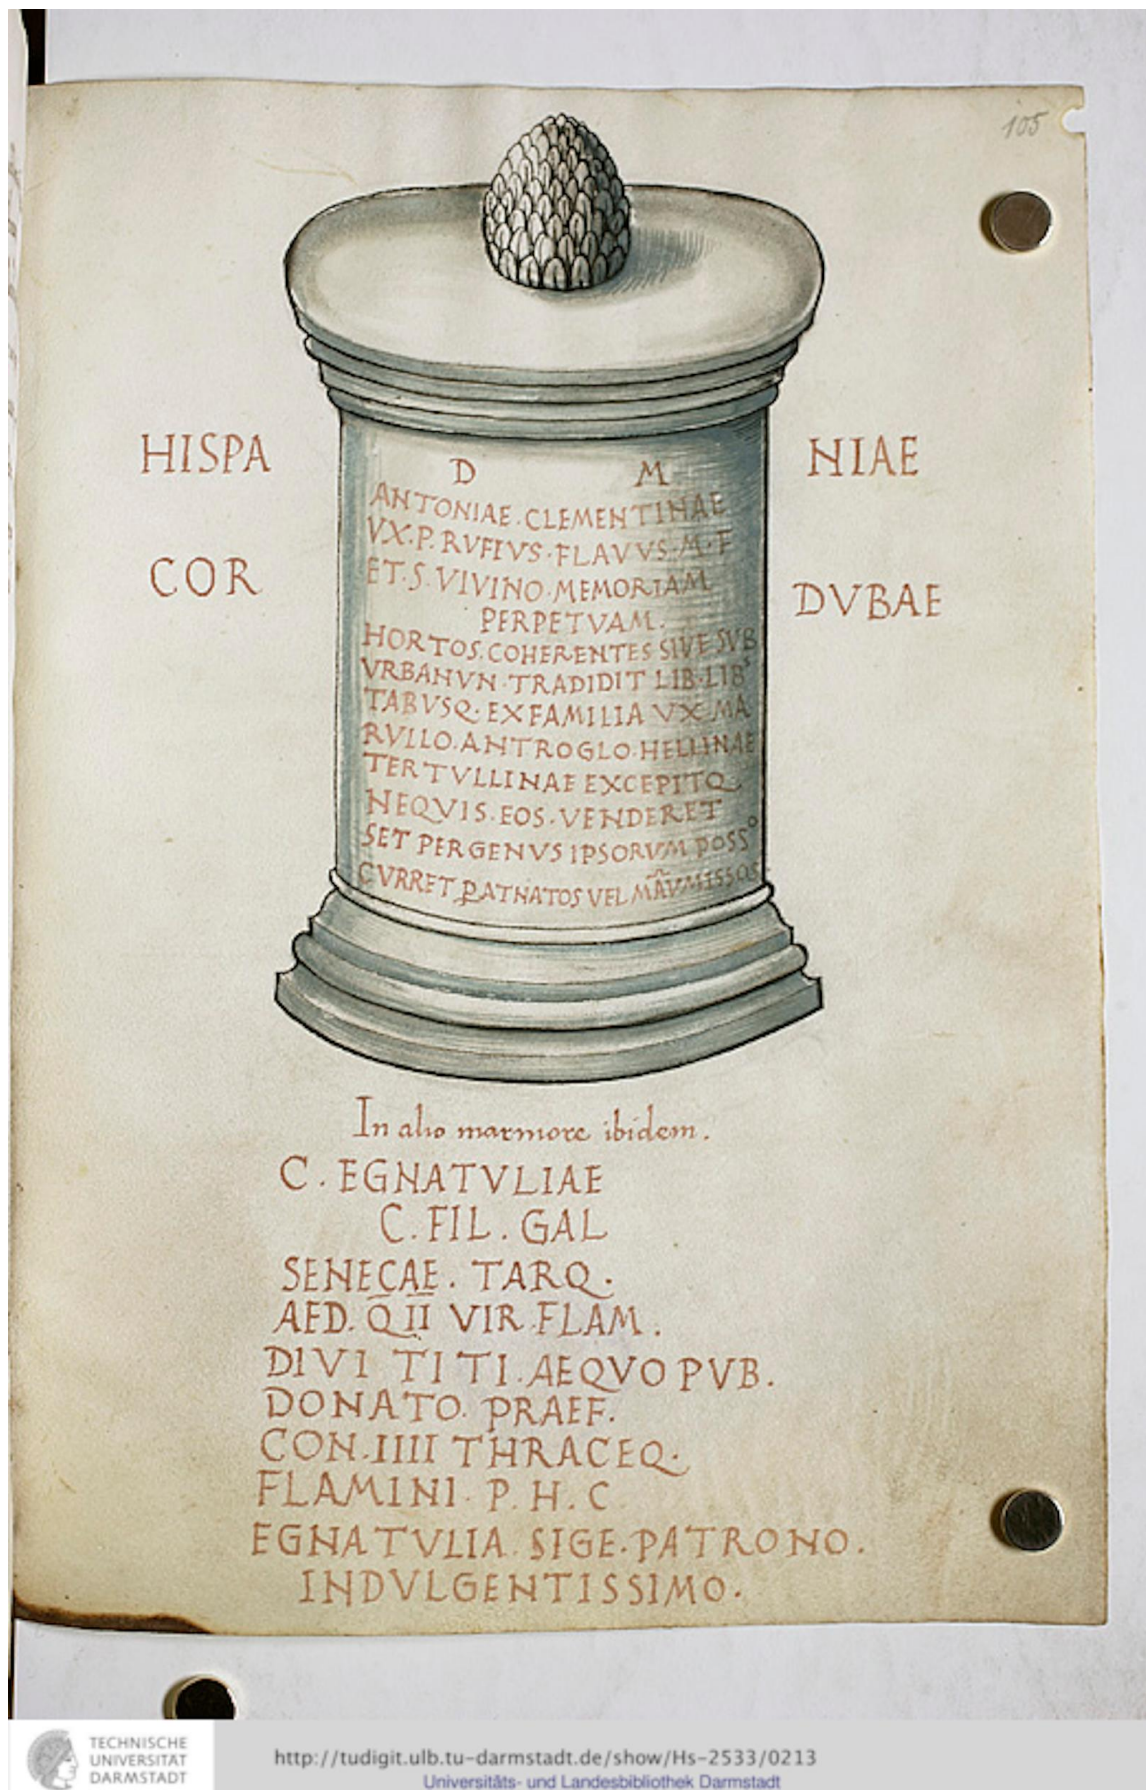 105
HISPA NIAE
D M
ANTONIAE . CLEMENTINAE
VX . P . RVFIVS . FLAVVS . M . F
COR DVBAE
ET . S . VIVINO . MEMORIAM
PERPETVAM .
HORTOS . COHERENTES SIVE SVB
VRBANVN . TRADIDIT LIB . LIBˢ
TABVSQ . EX FAMILIA VX MA
RVLLO . ANTROGLO . HELLINAE
TERTVLLINAE EXCEPITQ
NEQVIS . EOS . VENDERET
SET PER GENVS IPSORVM POSSº
CVRRET P̱ ATNATOS VEL MÃVMISSOS
In alio marmore ibidem .
C . EGNATVLIAE
C . FIL . GAL
SENECAE . TARQ .
AED . Q̄ ĪĪ VIR . FLAM .
DIVI TITI . AEQVO PVB .
DONATO . PRAEF .
CON . IIII THRACEQ .
FLAMINI . P . H . C
EGNATVLIA . SIGE . PATRONO .
INDVLGENTISSIMO .
TECHNISCHE
UNIVERSITÄT
DARMSTADT
http://tudigit.ulb.tu-darmstadt.de/show/Hs-2533/0213
Universitäts- und Landesbibliothek Darmstadt